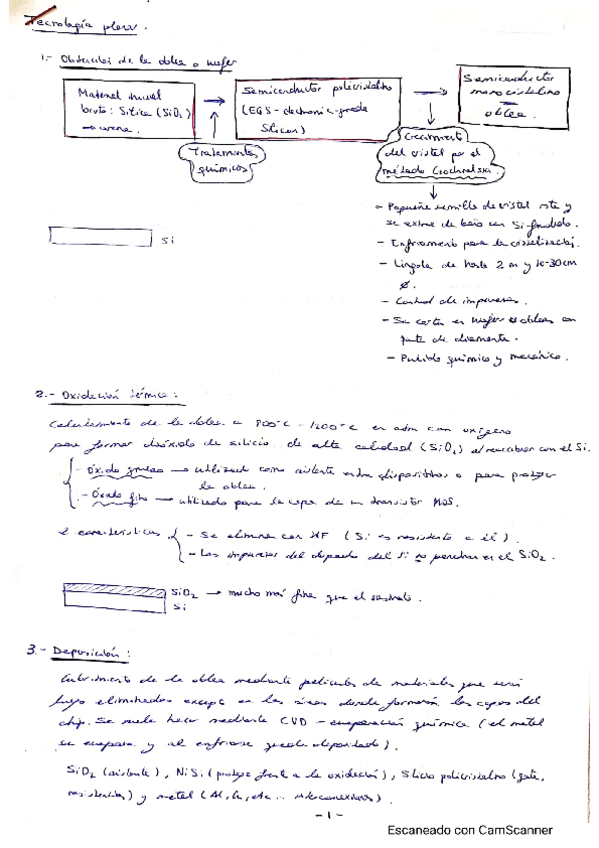 Tecnología planar.
1.- Obtención de la oblea o wafer
Material inicial
bruto: Sílice (SiO2)
→ arena.
Semiconductor policristalino
(EGS - electronic-grade
Silicon)
Semiconductor
monocristalino
oblea.
Tratamientos
químicos
Crecimiento
del cristal por el
método Czochralski.
- Pequeña semilla de cristal rota y
se extrae de baño con Si fundido.
- Enfriamiento para la cristalización.
- Lingote de hasta 2 m y 10-30cm
ø.
- Control de impurezas.
- Se corta en wafer u obleas con
punta de diamante.
- Pulido químico y mecánico.
Si
2.- Oxidación térmica:
Calentamiento de la oblea a 800°C - 1200°C en atm con oxígeno
para formar dióxido de silicio de alta calidad (SiO2) al reaccionar con el Si.
- Óxido grueso → utilizado como aislante entre dispositivos o para proteger
la oblea.
- Óxido fino → utilizado para la capa de un transistor MOS.
2 características
- Se elimina con HF (Si es resistente a él).
- Las impurezas del dopado del Si no penetran en el SiO2.
SiO2 → mucho más fina que el sustrato.
Si
3.- Deposición:
Cubrimiento de la oblea mediante películas de materiales que serán
luego eliminados excepto en las áreas donde formarán las capas del
chip. Se suele hacer mediante CVD - evaporación química (el metal
se evapora y al enfriarse queda depositado).
SiO2 (aislante), NiSi (protege frente a la oxidación), Silicio policristalino (gate,
resistencias) y metal (Al, Cu, etc... interconexiones).
- 1 -
Escaneado con CamScanner